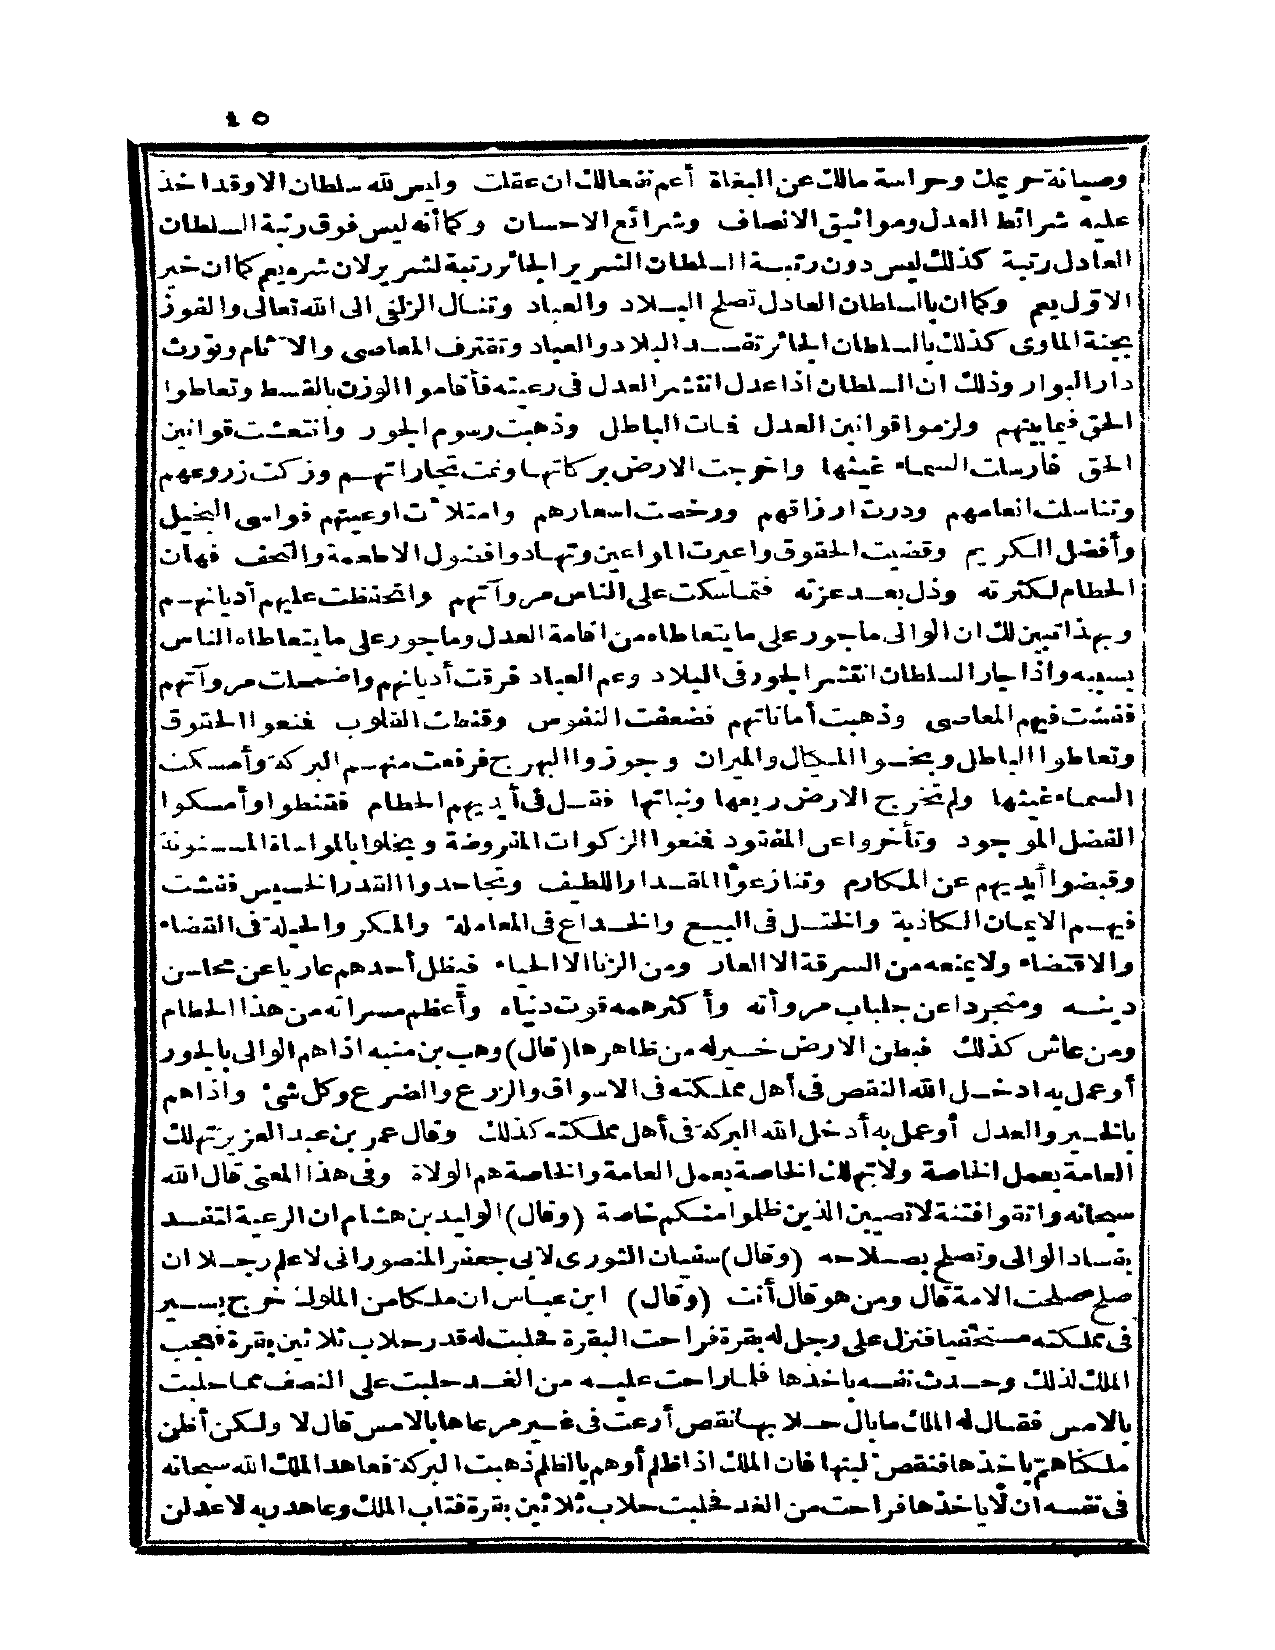 ٤٥
وصيانة حريمك وحراسة مالك عن البغاة أعم نفعالك ان عقلت وليس لله سلطان الا وقد اخذ
عليه شرائط العدل ومواثيق الانصاف وشرائع الاحسان وكما أنه ليس فوق رتبة السلطان
العادل رتبة كذلك ليس دون رتبة السلطان الشرير الجائر رتبة لشرير لان شره يعم كما ان خير
الاوّل يعم وكما ان بالسلطان العادل تصلح البلاد والعباد وتنال الزلفى الى الله تعالى والفوز
بجنة الماوى كذلك بالسلطان الجائر تفسد البلاد والعباد وتقترف المعاصى والآثام وتورث
دار البوار وذلك ان السلطان اذا عدل انتشر العدل فى رعيته فأقاموا الوزن بالقسط وتعاطوا
الحق فيما بينهم ولزموا قوانين العدل فمات الباطل وذهبت رسوم الجور وانتعشت قوانين
الحق فارسلت السماء غيثها واخرجت الارض بركاتها ونمت تجاراتهم وزكت زروعهم
وتناسلت انعامهم ودرت ارزاقهم ورخصت اسعارهم وامتلأت اوعيتهم فواسى البخيل
وأفضل الكريم وقضيت الحقوق واعيرت المواعين وتهادوا فضول الاطعمة والتحف فهان
الحطام لكثرته وذل بعد عزته فتماسكت على الناس مروآتهم وانحفظت عليهم أديانهم
وبهذا تبين لك ان الوالى ماجور على ما يتعاطاه من اقامة العدل وماجور على ما يتعاطاه الناس
بسببه واذا جار السلطان انتشر الجور فى البلاد وعم العباد فرقت أديانهم واضمحلت مروآتهم
ففشت فيهم المعاصى وذهبت أماناتهم فضعفت النفوس وقنطت القلوب فمنعوا الحقوق
وتعاطوا الباطل وبخسوا المكيال والميزان وجوزوا البهرج فرفعت منهم البركة وأمسكت
السماء غيثها ولم تخرج الارض ريعها ونباتها فقل فى أيديهم الحطام فقنطوا وأمسكوا
الفضل الموجود وتأخروا عى المفقود فمنعوا الزكوات المفروضة وبخلوا بالمواساة المسنونة
وقبضوا أيديهم عن المكارم وتنازعوا المقدار اللطيف وتجاحدوا القدر الخسيس ففشت
فيهم الايمان الكاذبة والختل فى البيع والخداع فى المعاملة والمكر والحيلة فى القضاء
والاقتضاء ولا يمنعه من السرقة الا العار ومن الزنا الا الحياء فيظل أحدهم عاريا عن محاسن
دينه ومتجردا عن جلباب مروأته وأكثر همه قوت دنياه وأعظم مسراته من هذا الحطام
ومن عاش كذلك فبطن الارض خير له من ظاهرها (قال) وهب بن منبه اذا هم الوالى بالجور
أو عمل به ادخل الله النقص فى أهل مملكته فى الاسواق والزرع والضرع وكل شئ واذا هم
بالخير والعدل أو عمل به أدخل الله البركة فى أهل مملكته كذلك وقال عمر بن عبد العزيز تهلك
العامة بعمل الخاصة ولا تهلك الخاصة بعمل العامة والخاصة هم الولاة وفى هذا المعنى قال الله
سبحانه واتقوا فتنة لا تصيبن الذين ظلموا منكم خاصة (وقال) الوليد بن هشام ان الرعية لتفسد
بفساد الوالى وتصلح بصلاحه (وقال) سفيان الثورى لابى جعفر المنصور انى لاعلم رجلا ان
صلح صلحت الامة قال ومن هو قال أنت (وقال) ابن عباس ان ملكا من الملوك خرج يسير
فى مملكته مستخفيا فنزل على رجل له بقرة فراحت البقرة فحلبت له قدر حلاب ثلاثين بقرة فعجب
الملك لذلك وحدث نفسه باخذها فلما راحت عليه من الغد حلبت على النصف مما حلبت
بالامس فقال له الملك ما بال حلابها نقص أرعت فى غير مرعاها بالامس قال لا ولكن أظن
ملكا هم باخذها فنقص لبنها فان الملك اذا ظلم أو هم بالظلم ذهبت البركة فعاهد الملك الله سبحانه
فى نفسه ان لا ياخذها فراحت من الغد فحلبت حلاب ثلاثين بقرة فتاب الملك وعاهد ربه لاعدلن